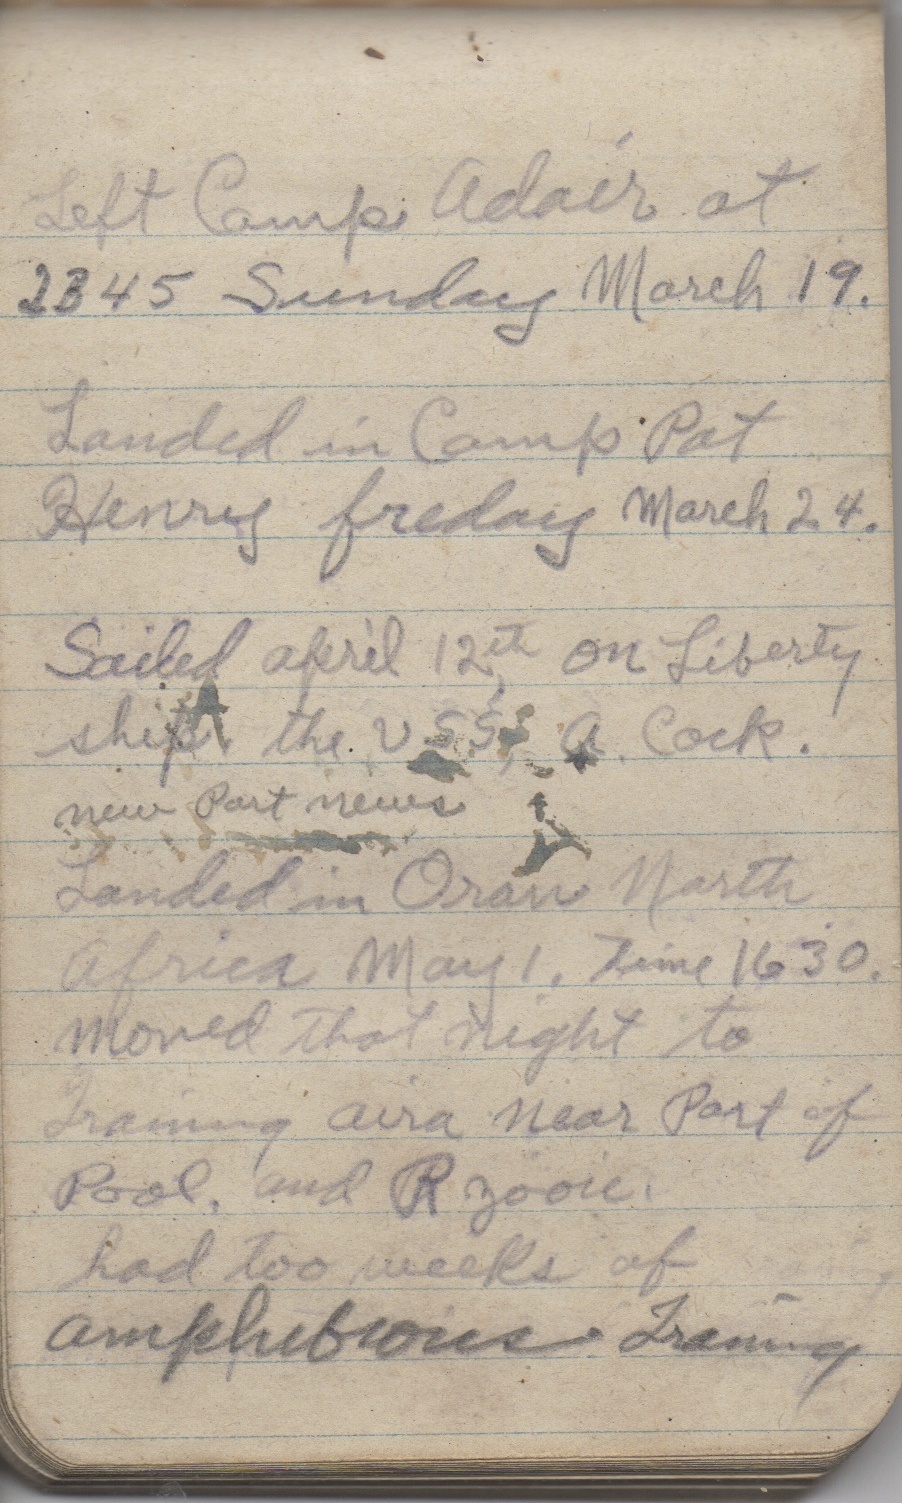 Left Camp Adair at
2345 Sunday March 19.
Landed in Camp Pat
Henry freday March 24.
Sailed april 12th on Liberty
ship. the USS, A. Cock.
new Port news
Landed in Oran North
Africa May 1. Time 1630.
Moved that night to
Training aira near Port of
Pool. and
had too weeks of
amphibious Training